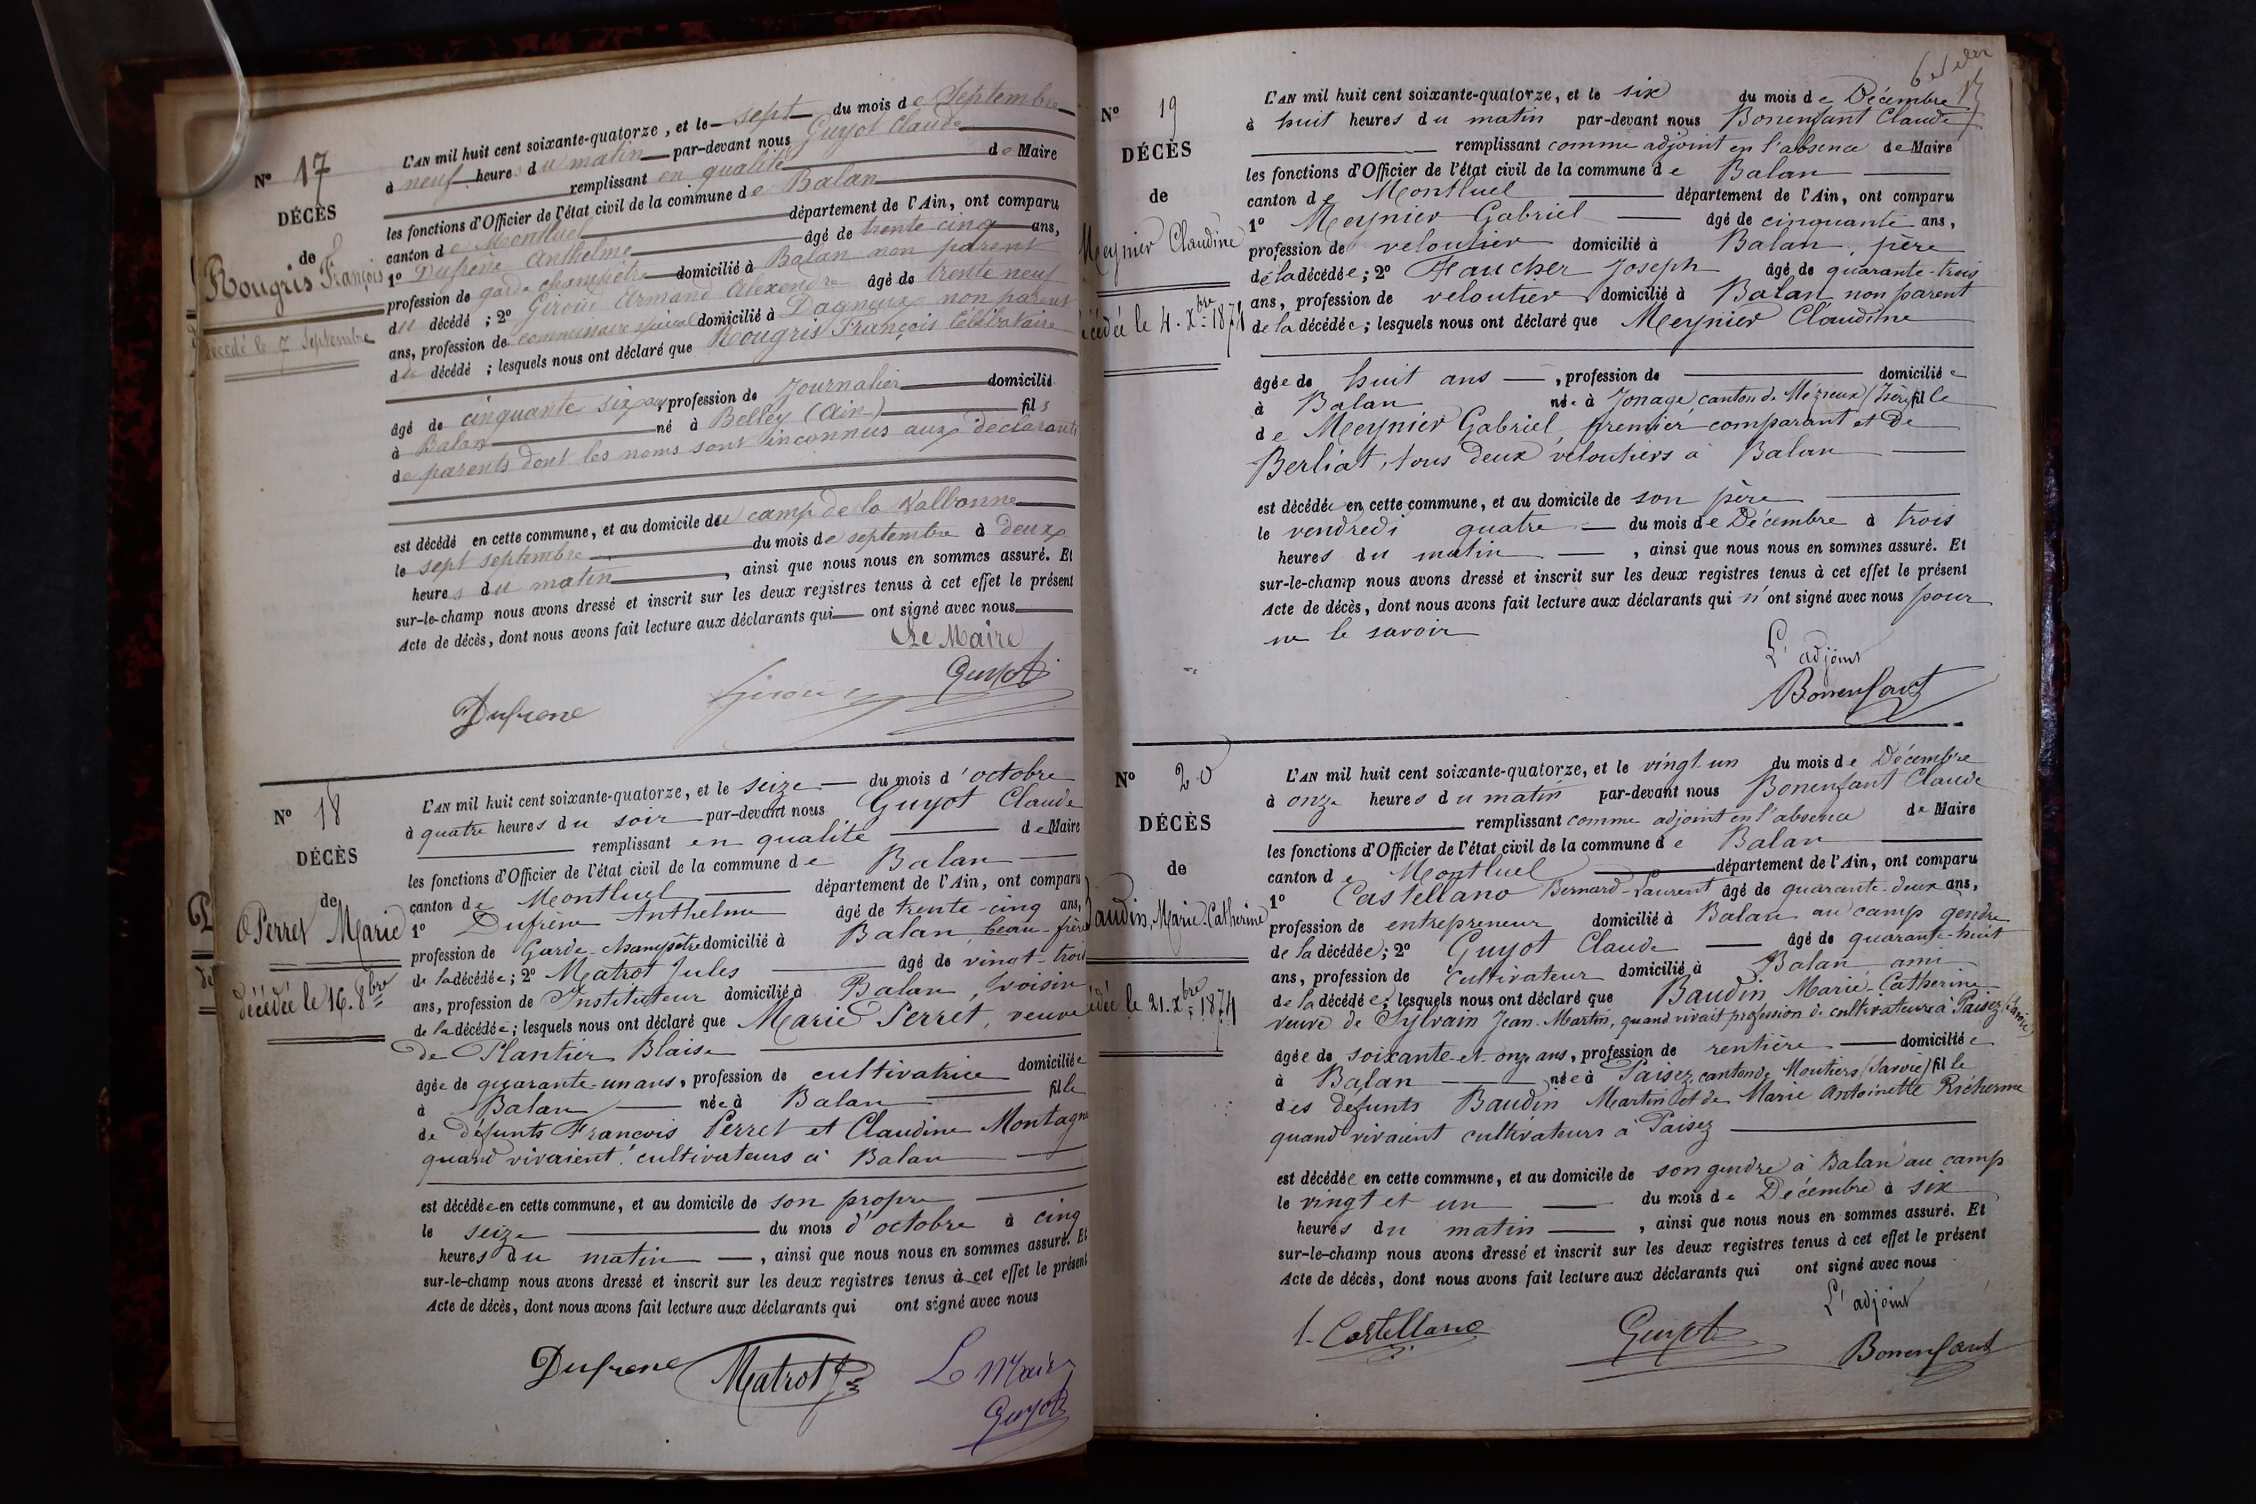 N° 17
DÉCÈS
de
Rougris François
décédé le 7 Septembre
L'AN mil huit cent soixante-quatorze, et le sept du mois de Septembre
à neuf heures du matin par-devant nous Guyot Claude
remplissant en qualité de Maire
les fonctions d'Officier de l'état civil de la commune de Balan
canton de Montluel département de l'Ain, ont comparu
1° Dufrène Anthelme âgé de trente cinq ans,
profession de garde champêtre domicilié à Balan non parent
du décédé ; 2° Giroud Armand Alexendre âgé de trente neuf
ans, profession de commissaire spécial domicilié à Dagneux non parent
du décédé ; lesquels nous ont déclaré que Rougris François Célibataire
âgé de cinquante six ans, profession de Journalier domicilié
à Balan né à Belley (Ain) fils
de parents dont les noms sont inconnus aux déclarants
est décédé en cette commune, et au domicile du camp de la Valbonne
le sept septembre du mois de septembre à deux
heures du matin, ainsi que nous nous en sommes assuré. Et
sur-le-champ nous avons dressé et inscrit sur les deux registres tenus à cet effet le présent
Acte de décès, dont nous avons fait lecture aux déclarants qui ont signé avec nous
Le Maire
Guyot
Dufrene
N° 18
DÉCÈS
de
Perret Marie
décédée le 16. 8bre
L'AN mil huit cent soixante-quatorze, et le seize du mois d'octobre
à quatre heures du soir par-devant nous Guyot Claude
remplissant en qualité de Maire
les fonctions d'Officier de l'état civil de la commune de Balan
canton de Montluel département de l'Ain, ont comparu
1° Dufrène Anthelme âgé de trente-cinq ans,
profession de Garde-champêtre domicilié à Balan, beau-frère
de la décédée ; 2° Matrot Jules âgé de vingt-trois
ans, profession de Instituteur domicilié à Balan, voisin
de la décédée ; lesquels nous ont déclaré que Marie Perret, veuve
de Plantier Blaise
âgée de quarante-un ans, profession de cultivatrice domiciliée
à Balan née à Balan fille
de défunts François Perret et Claudine Montagn
quand vivaient cultivateurs à Balan
est décédée en cette commune, et au domicile de son propre
le seize du mois d'octobre à cinq
heures du matin, ainsi que nous nous en sommes assuré. Et
sur-le-champ nous avons dressé et inscrit sur les deux registres tenus à cet effet le présent
Acte de décès, dont nous avons fait lecture aux déclarants qui ont signé avec nous
Dufrene Matrot Le Maire
Guyot
N° 19
DÉCÈS
de
Meynier Claudine
décédée le 4. Xbre 1874
L'AN mil huit cent soixante-quatorze, et le six du mois de Décembre
à huit heures du matin par-devant nous Bonenfant Claude
remplissant comme adjoint en l'absence de Maire
les fonctions d'Officier de l'état civil de la commune de Balan
canton de Montluel département de l'Ain, ont comparu
1° Meynier Gabriel âgé de cinquante ans,
profession de veloutier domicilié à Balan, père
de la décédée ; 2° Faucher Joseph âgé de quarante-trois
ans, profession de veloutier domicilié à Balan non parent
de la décédée ; lesquels nous ont déclaré que Meynier Claudine
âgée de huit ans, profession de domiciliée
à Balan née à Jonage, canton de Mézieux (Isère) fille
de Meynier Gabriel, premier comparant et De
Berliat, tous deux veloutiers à Balan
est décédée en cette commune, et au domicile de son père
le vendredi quatre du mois de Décembre à trois
heures du matin, ainsi que nous nous en sommes assuré. Et
sur-le-champ nous avons dressé et inscrit sur les deux registres tenus à cet effet le présent
Acte de décès, dont nous avons fait lecture aux déclarants qui n'ont signé avec nous pour
ne le savoir
L'adjoint
Bonenfant
N° 20
DÉCÈS
de
Baudin, Marie-Catherine
décédée le 21. Xbre 1874
L'AN mil huit cent soixante-quatorze, et le vingt un du mois de Décembre
à onze heures du matin par-devant nous Bonenfant Claude
remplissant comme adjoint en l'absence de Maire
les fonctions d'Officier de l'état civil de la commune de Balan
canton de Montluel département de l'Ain, ont comparu
1° Castellano Bernard-Laurent âgé de quarante-deux ans,
profession de entrepreneur domicilié à Balan au camp gendre
de la décédée ; 2° Guyot Claude âgé de quarante-huit
ans, profession de Cultivateur domicilié à Balan ami
de la décédée ; lesquels nous ont déclaré que Baudin Marie-Catherine
veuve de Sylvain Jean-Martin, quand vivait profession de cultivateur à Paisez (Savoie)
âgée de soixante-et-onze ans, profession de rentière domiciliée
à Balan née à Paisez, canton de Moutiers (Savoie) fille
des défunts Baudin Martin et de Marie Antoinette Richerme
quand vivaient cultivateurs à Paisez
est décédée en cette commune, et au domicile de son gendre à Balan au camp
le vingt et un du mois de Décembre à six
heures du matin, ainsi que nous nous en sommes assuré. Et
sur-le-champ nous avons dressé et inscrit sur les deux registres tenus à cet effet le présent
Acte de décès, dont nous avons fait lecture aux déclarants qui ont signé avec nous
L'adjoint
Castellano Guyot Bonenfant